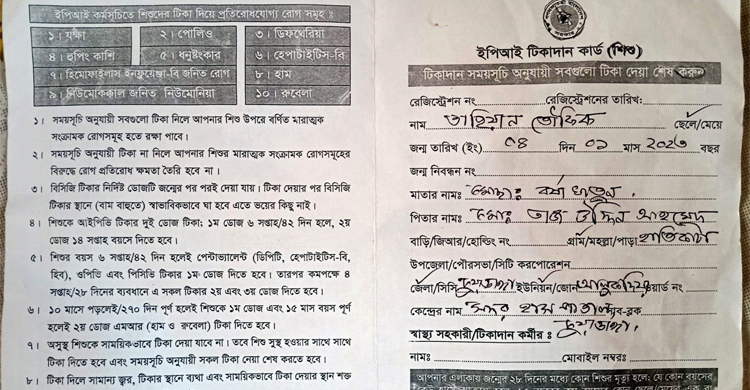 ইপিআই কর্মসূচিতে শিশুদের টিকা দিয়ে প্রতিরোধযোগ্য রোগ সমূহ ঃ
১। যক্ষা ২। পোলিও ৩। ডিফথেরিয়া
৪। হুপিং কাশি ৫। ধনুষ্টংকার ৬। হেপাটাইটিস-বি
৭। হিমোফাইলাস ইনফ্লুয়েঞ্জা-বি জনিত রোগ ৮। হাম
৯। নিউমোকক্কাল জনিত নিউমোনিয়া ১০। রুবেলা
১। সময়সূচি অনুযায়ী সবগুলো টিকা নিলে আপনার শিশু উপরে বর্ণিত মারাত্মক
সংক্রামক রোগসমূহ হতে রক্ষা পাবে।
২। সময়সূচি অনুযায়ী টিকা না নিলে আপনার শিশুর মারাত্মক সংক্রামক রোগসমূহের
বিরুদ্ধে রোগ প্রতিরোধ ক্ষমতা তৈরি হবে না।
৩। বিসিজি টিকার নির্দিষ্ট ডোজটি জন্মের পর পরই দেয়া যায়। টিকা দেয়ার পর বিসিজি
টিকার স্থানে (বাম বাহুতে) স্বাভাবিকভাবে ঘা হবে এতে ভয়ের কিছু নাই।
৪। শিশুকে আইপিভি টিকার দুই ডোজ টিকা; ১ম ডোজ ৬ সপ্তাহ/৪২ দিন হলে, ২য়
ডোজ ১৪ সপ্তাহ বয়সে দিতে হবে।
৫। শিশুর বয়স ৬ সপ্তাহ/৪২ দিন হলেই পেন্টাভ্যালেন্ট (ডিপিটি, হেপাটাইটিস-বি,
হিব), ওপিভি এবং পিসিভি টিকার ১ম ডোজ দিতে হবে। তারপর কমপক্ষে ৪
সপ্তাহ/২৮ দিনের ব্যবধানে এ সকল টিকার ২য় এবং ৩য় ডোজ দিতে হবে।
৬। ১০ মাসে পড়লেই/২৭০ দিন পূর্ণ হলেই শিশুকে ১ম ডোজ এবং ১৫ মাস বয়স পূর্ণ
হলেই ২য় ডোজ এমআর (হাম ও রুবেলা) টিকা দিতে হবে।
৭। অসুস্থ শিশুকে সাময়িকভাবে টিকা দেয়া যাবে না। তবে শিশু সুস্থ হওয়ার সাথে সাথে
টিকা দিতে হবে এবং সময়সূচি অনুযায়ী সকল টিকা নেয়া শেষ করতে হবে।
৮। টিকা দিলে সামান্য জ্বর, টিকার স্থানে ব্যথা এবং সাময়িকভাবে টিকা দেয়ার স্থান শক্ত
ইপিআই টিকাদান কার্ড (শিশু)
টিকাদান সময়সূচি অনুযায়ী সবগুলো টিকা দেয়া শেষ করুন
রেজিস্ট্রেশন নং রেজিস্ট্রেশনের তারিখ:
নাম তাহিয়ান তৌফিক ছেলে/মেয়ে
জন্ম তারিখ (ইং) ০৪ দিন ০১ মাস ২০২৩ বছর
জন্ম নিবন্ধন নং
মাতার নামঃ মোছাঃ বর্ষা খাতুন
পিতার নামঃ মোঃ তাজ উদ্দিন আহমেদ
বাড়ি/জিআর/হোল্ডিং নং গ্রাম/মহল্লা/পাড়া হাতিকাটা
উপজেলা/পৌরসভা/সিটি করপোরেশন
জেলা/সিসি চুয়াডাঙ্গা ইউনিয়ন/জোন আলুকদিয়া ওয়ার্ড নং
কেন্দ্রের নাম সদর হাসপাতাল সাব-ব্লক
চুয়াডাঙ্গা।
স্বাস্থ্য সহকারী/টিকাদান কর্মীর ঃ
নামঃ মোবাইল নম্বরঃ
আপনার এলাকায় জন্মের ২৮ দিনের মধ্যে কোন শিশুর মৃত্যু হলে; যে কোন বয়সের